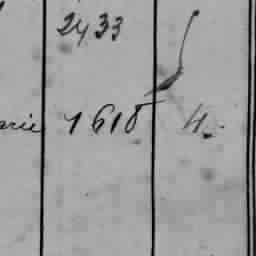 2433
arie 1618 4.